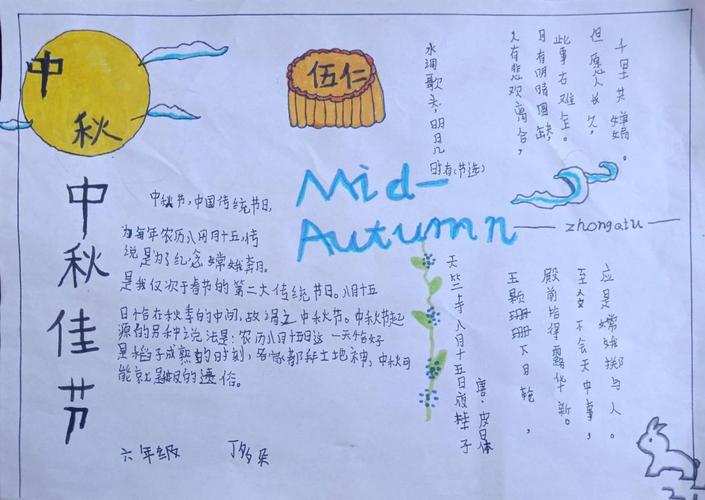 中
秋
伍仁
水调歌头,明月几
时有(节选)
人有悲欢离合,
月有阴晴圆缺,
此事古难全。
但愿人长久,
千里共婵娟。
中秋佳节
Mid-
Autumn
zhongqiu
中秋节,中国传统节日,
为每年农历八月十五,传
说是为了纪念嫦娥奔月。
是我仅次于春节的第二大传统节日。八月十五
日恰在秋季的中间,故谓之中秋节。中秋节起
源的另种说法是:农历八月十五日这一天恰好
是稻子成熟的时刻,各家都拜土地神,中秋可
能就是的遗俗。
天竺寺八月十五日夜桂子
唐·皮日休
玉颗珊珊下月,
殿前拾得露华新。
至今不会天中事,
应是嫦娥掷与人。
六年级